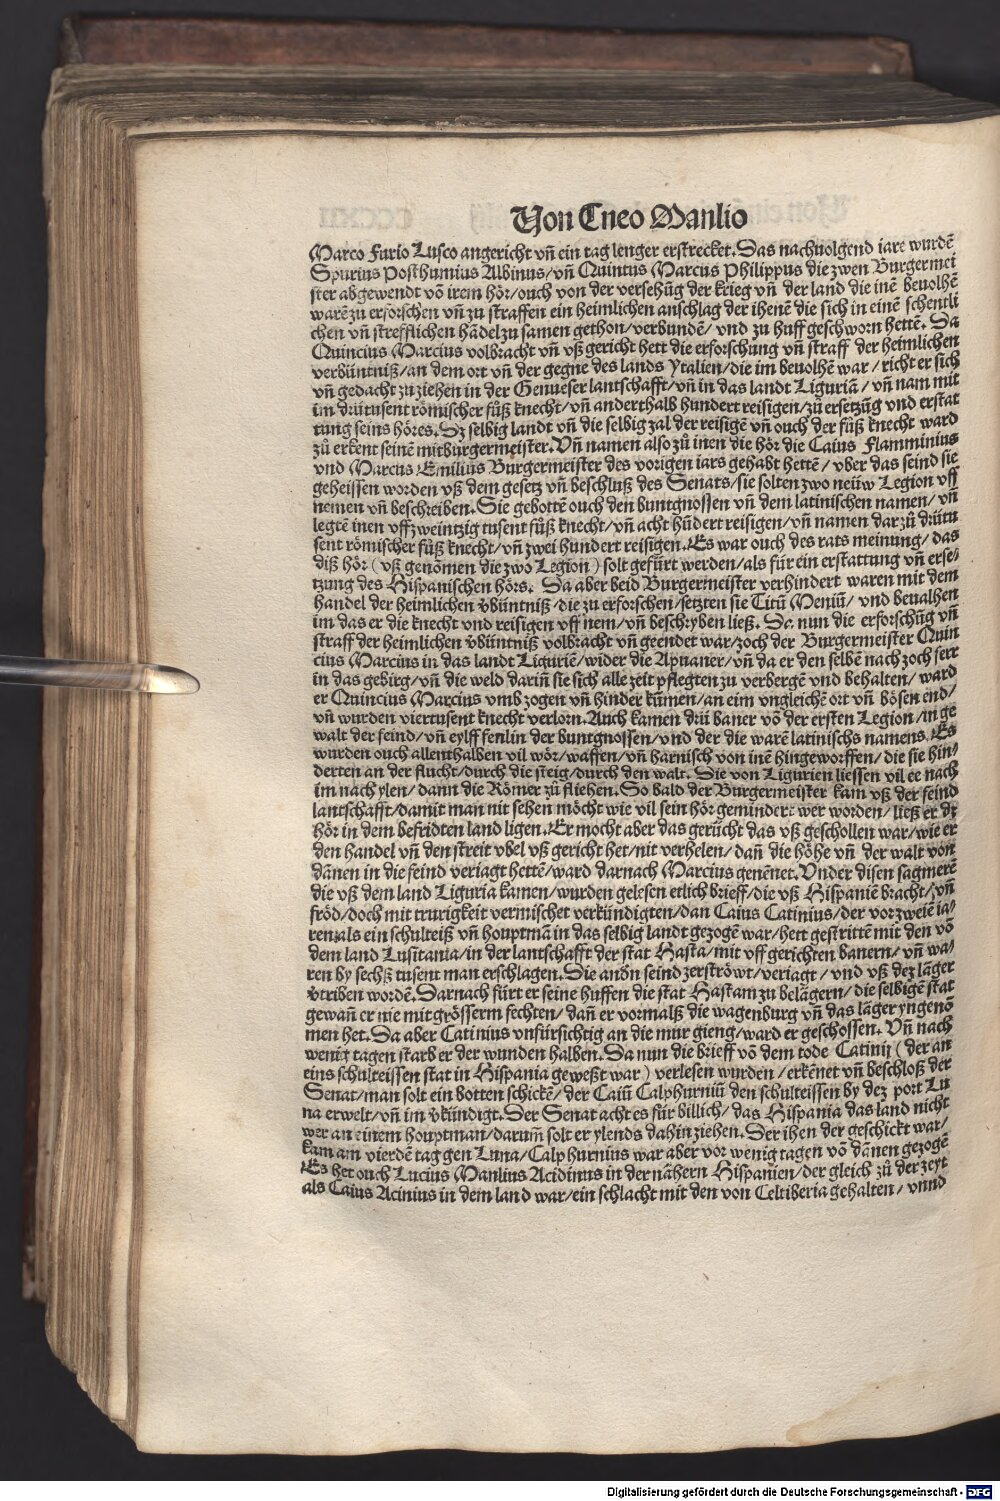 Von Cneo Manlio
Marco Furio Lusco angericht vñ ein tag lenger erstrecket. Das nachuolgend iare wurdē
Spurius Posthumius Albinus/ vñ Quintus Marcus Philippus die zwen Burgermei
ster abgewendt vō irem hör/ ouch von der versehūg der krieg vñ der land die inē beuolhē
warē zu erforschen vñ zu straffen ein heimlichen anschlag der ihenē die sich in einē schentli
chen vñ strefflichen hādel zu samen gethon/ verbundē/ vnd zu huff geschworn hettē. Da
Quincius Marcius volbracht vñ vß gericht hett die erforschung vñ straff der heimlichen
verbüntniß/ an dem ort vñ der gegne des lands Ytalien/ die im beuolhē war/ richt er sich
vñ gedacht zu ziehen in der Genueser lantschafft/ vñ in das landt Liguriā/ vñ nam mit
im drütusent römischer fůß knecht/ vñ anderthalb hundert reisigen/ zů ersetzūg vnd erstat
tung seins höres. Dz selbig landt vñ die selbig zal der reisigē vñ ouch der fůß knecht ward
zů erkent seinē mitburgermeister. Vñ namen also zů inen die hör die Caius Flamminius
vnd Marcus Emilius Burgermeister des vorigen iars gehabt hettē/ vber das seind sie
geheissen worden vß dem gesetz vñ beschluß des Senats/ sie solten zwo neüw Legion vff
nemen vñ beschreiben. Sie gebottē ouch den buntgnossen vñ dem latinischen namen/ vñ
legtē inen vff zweintzig tusent fůß knecht/ vñ acht hūdert reisigen/ vñ namen dar zů drütu
sent römischer fůß knecht/ vñ zwei hundert reisigen. Es war ouch des rats meinung/ das
diß hör (vß genōmen die zwo Legion) solt gefürt werden/ als für ein erstattung vñ erse/
tzung des Hispanischen hörs. Da aber beid Burgermeister verhindert waren mit dem
handel der heimlichen v̄büntniß/ die zu erforschen/ setzten sie Titū Meniū/ vnd beualhen
im das er die knecht vnd reisigen vff nem/ vñ beschryben ließ. Do nun die erforschūg vñ
straff der heimlichen v̄büntniß volbracht vñ geendet war/ zoch der Burgermeister Quin
cius Marcius in das landt Liguriē/ wider die Apuaner/ vñ da er den selbē nach zoch ferr
in das gebirg/ vñ die weld dariñ sie sich alle zeit pflegten zu verbergē vnd behalten/ ward
er Quincius Marcius vmb zogen vñ hinder kūmen/ an eim vngleichē ort vñ bösen end/
vñ wurden viertusent knecht verlorn. Auch kamen drü baner vō der ersten Legion/ in ge
walt der feind/ vñ eylff fenlin der buntgnossen/ vnd der die warē latinischs namens. Es
wurden ouch allenthalben vil wör/ waffen/ vñ harnisch von inē hingeworffen/ die sie hin/
derten an der flucht/ durch die steig/ durch den walt. Die von Ligurien liessen vil ee nach
im nach ylen/ dann die Römer zů fliehen. So bald der Burgermeister kam vß der feind
lantschafft/ damit man nit sehen möcht wie vil sein hör gemindert wer worden/ ließ er dz
hör in dem befridten land ligen. Er mocht aber das gerücht das vß geschollen war/ wie er
den handel vñ den streit vbel vß gericht het/ nit verhelen/ dañ die höhe vñ der walt von
dānen in die feind veriagt hettē/ ward darnach Marcius genēnet. Vnder disen sagmerē
die vß dem land Liguria kamen/ wurden gelesen etlich brieff/ die vß Hispaniē bracht/ vñ
fröd/ doch mit trurigkeit vermischet verkündigten/ dan Caius Catinius/ der vor zweiē ia/
ren als ein schulteiß vñ houptmā in das selbig landt gezogē war/ hett gestrittē mit den vō
dem land Lusitania/ in der lantschafft der stat Hasta/ mit vff gerichten banern/ vñ wa/
ren by sechß tusent man erschlagen. Die andn̄ seind zerströwt/ veriagt/ vnd vß dez lāger
v̄triben wordē. Darnach fürt er seine huffen die stat Hastam zu belägern/ die selbigē stat
gewañ er nie mit grösserm fechten/ dañ er vormalß die wagenburg vñ das läger yngenō
men het. Da aber Catinius vnfürsichtig an die mur gieng/ ward er geschossen. Vñ nach
wenig tagen starb er der wunden halben. Da nun die brieff vō dem tode Catinij (der an
eins schulteissen stat in Hispania geweßt war) verlesen wurden/ erkēnet vñ beschloß der
Senat/ man solt ein botten schickē/ der Caiū Calphurniū den schulteissen by dez port Lu
na erwelt/ vñ im v̄kündigt. Der Senat acht es für billich/ das Hispania das land nicht
wer an einem houptman/ darum̄ solt er ylends dahin ziehen. Der ihen der geschickt war/
kam am vierdē tag gen Luna/ Calphurnius war aber vor wenig tagen vō dānen gezogē
Es het ouch Lucius Manlius Acidinus in der nāhern Hispanien/ der gleich zů der zeyt
als Caius Acinius in dem land war/ ein schlacht mit den von Celtiberia gehalten/ vnnd
Digitalisierung gefördert durch die Deutsche Forschungsgemeinschaft - DFG